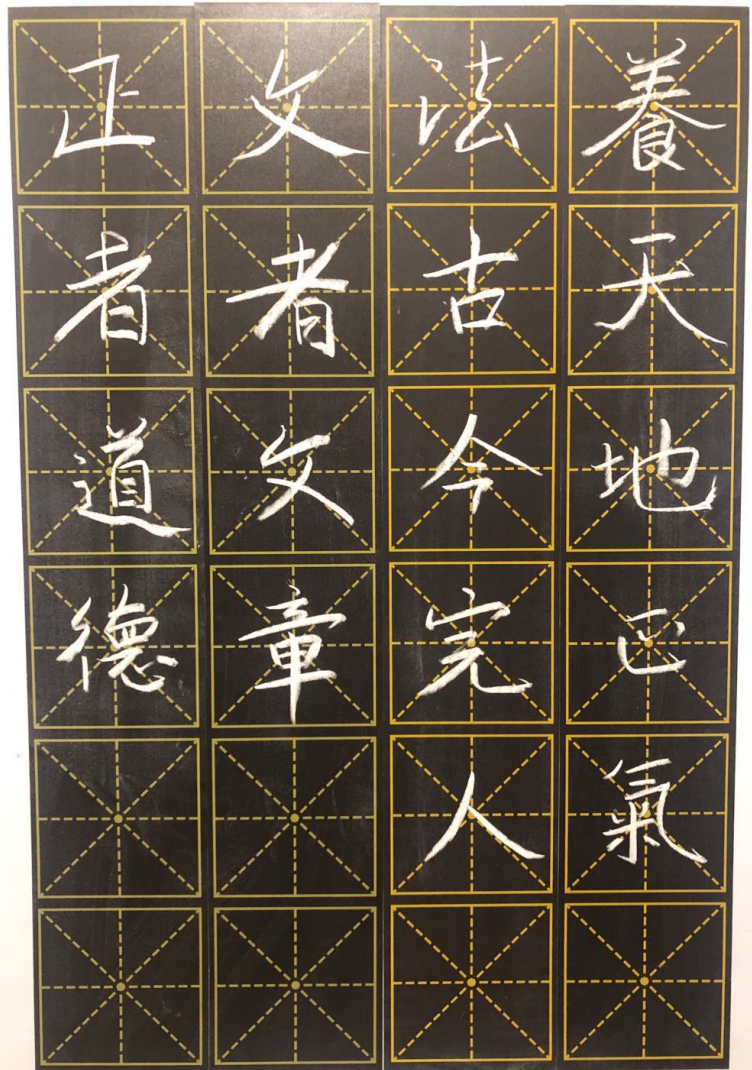 養天地正氣
法古今完人
文者文章
正者道德